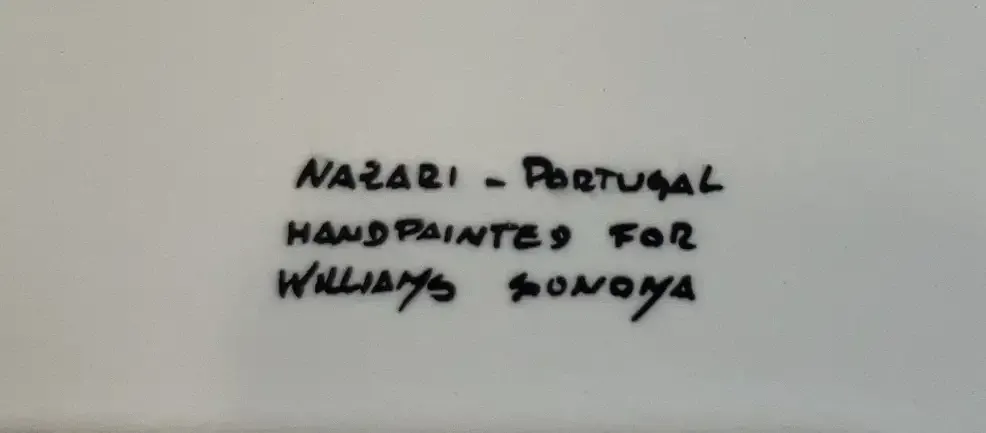 NAZARI - PORTUGAL
HANDPAINTED FOR
WILLIAMS SONOMA